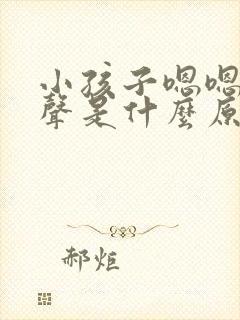 小孩子嗯嗯
聲是什麼原
郝炬